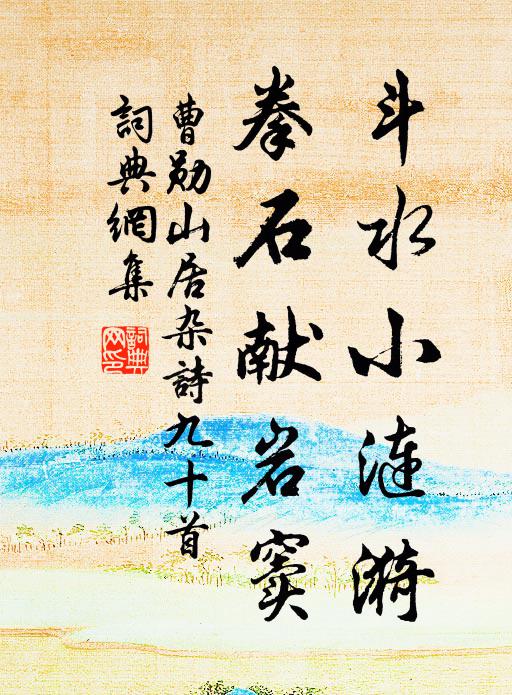 斗水小涟漪
拳石献岩窦
曹勋山居杂詩九十首
詞典網集
詞典網印